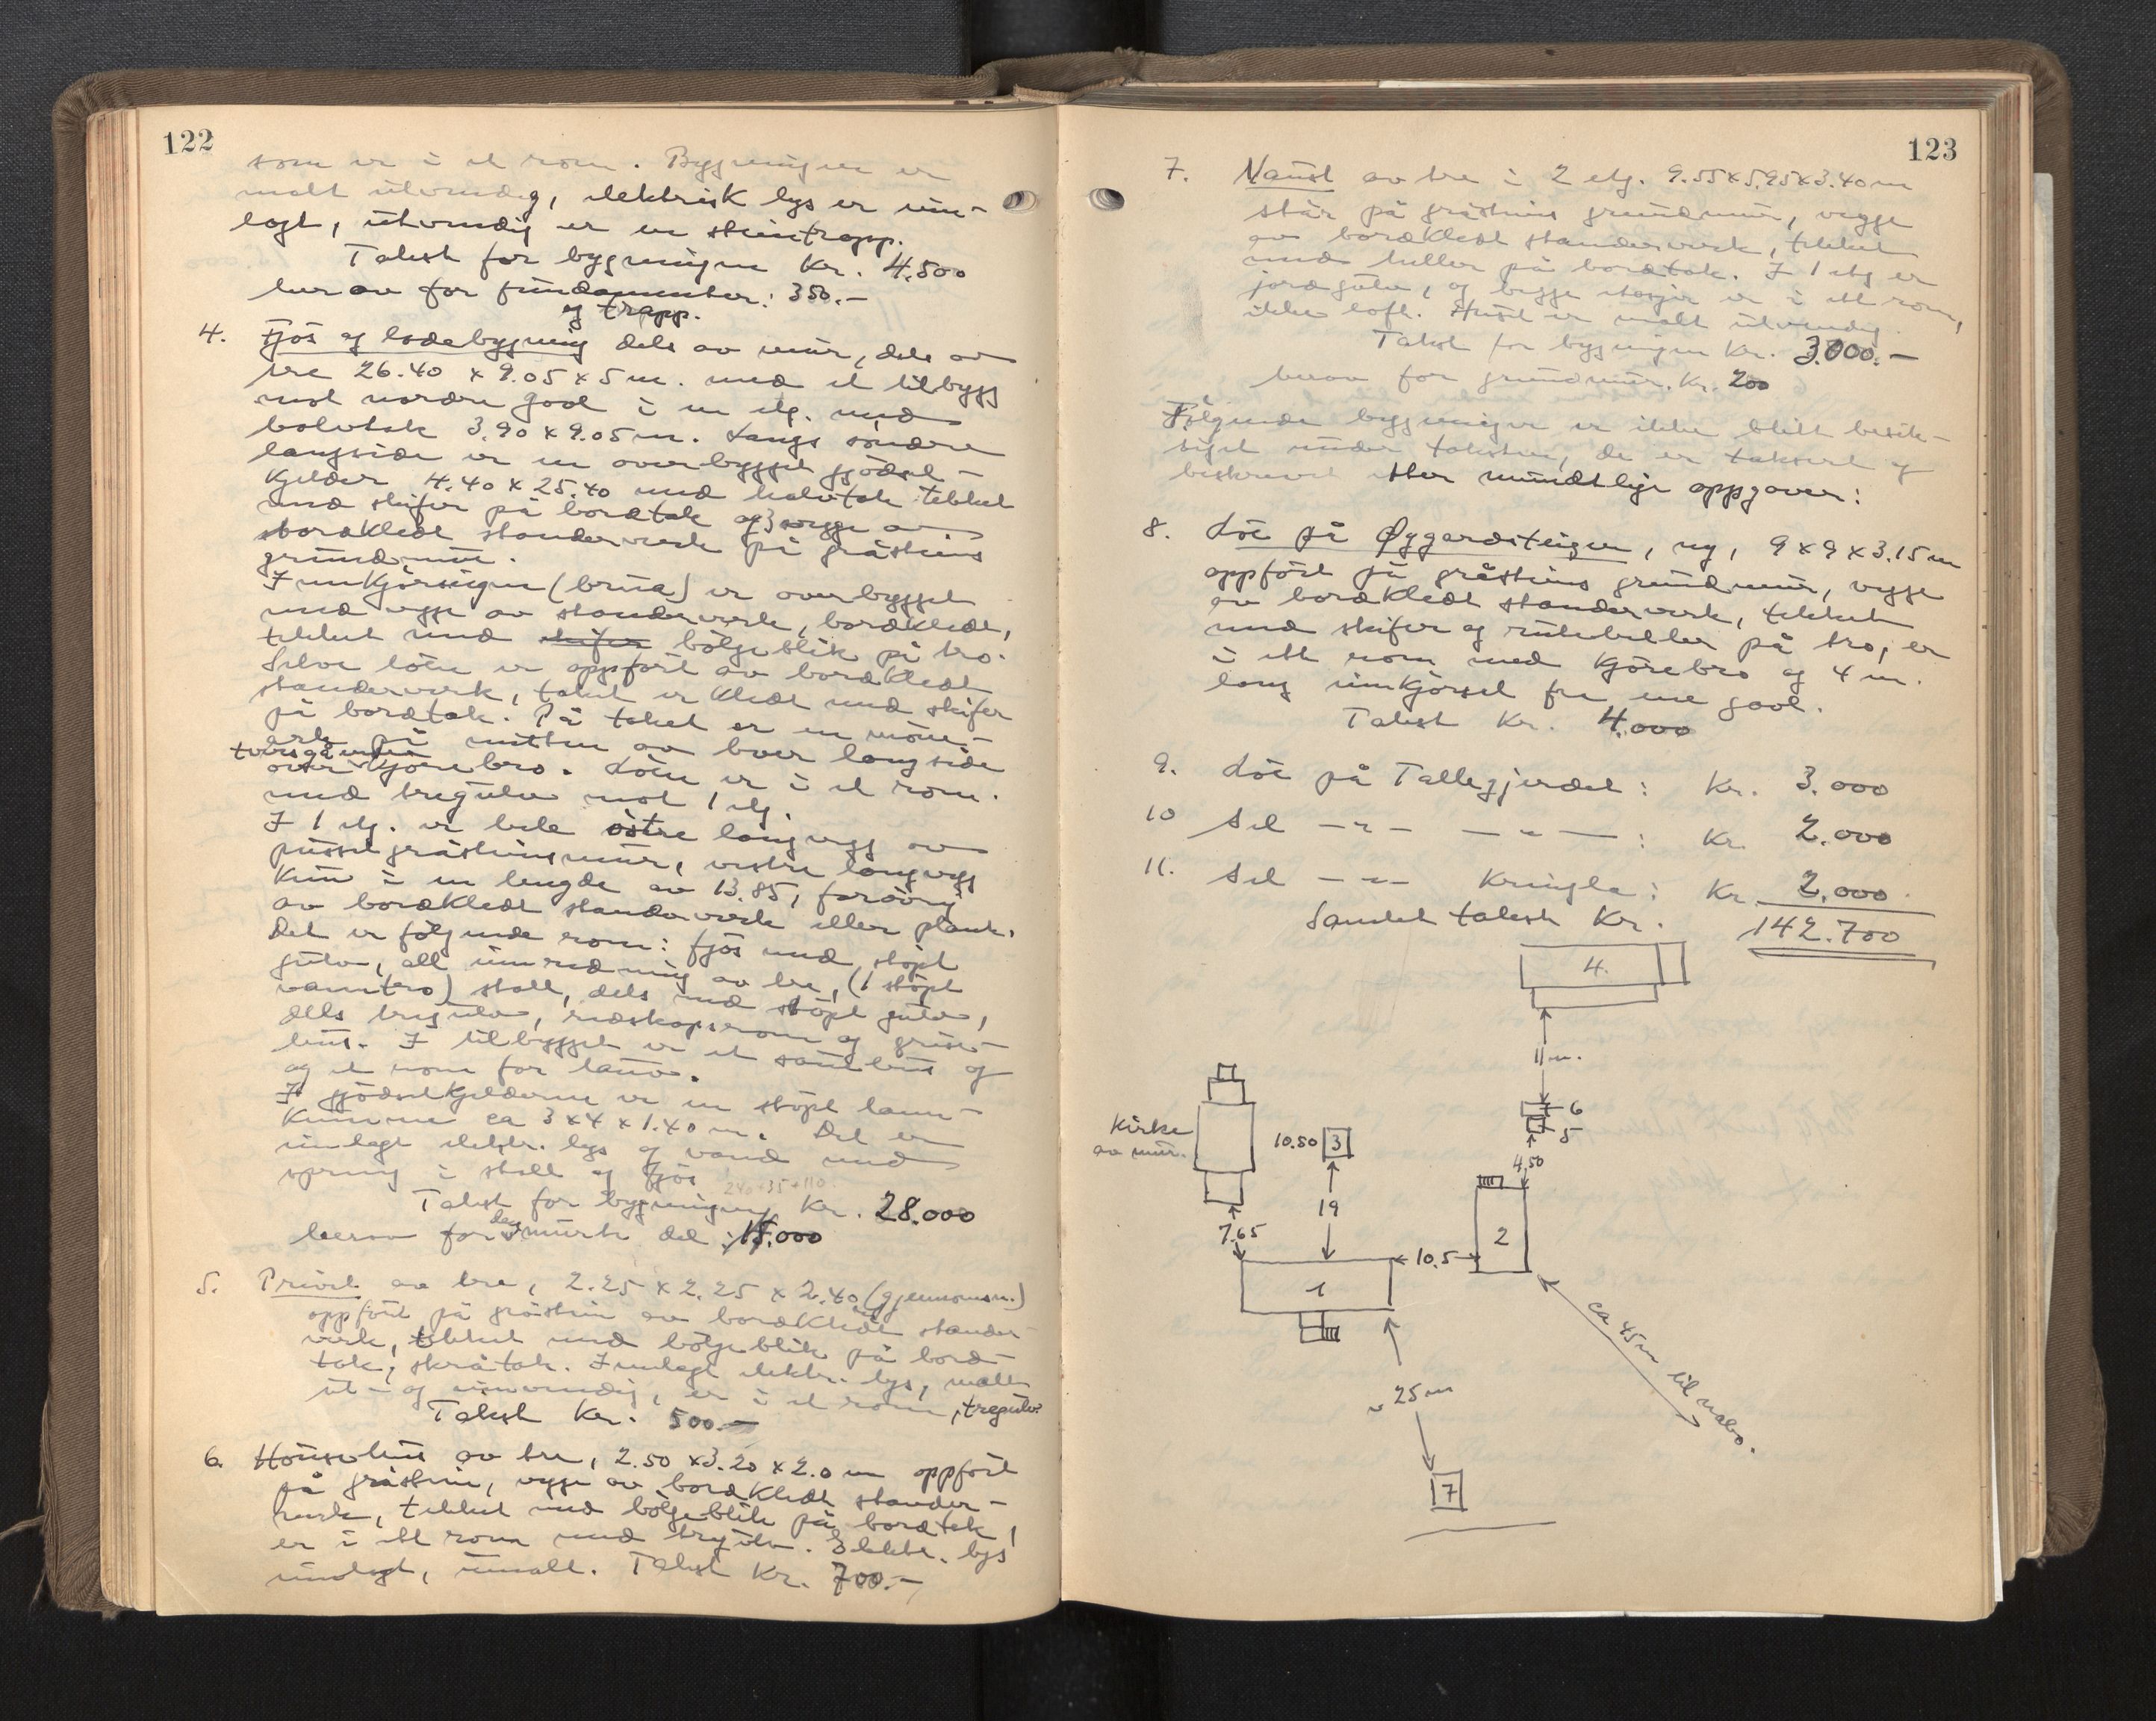 122
som er i et rom. Bygningen er
malt utvendig, elektrisk lys er inn-
lagt, utvendig er en steintrapp.
Takst for bygningen Kr. 4.500
herav for fundamenter: 350.-
og trapp.
4. Fjös og lödebygning dels av mur, dels av
tre 26.40 x 9.05 x 5 m. med et tilbygg
mot nordre gavl i en etg. med
halvtak 3.90 x 9.05 m. Langs söndre
langside er en overbygget gjödsel-
kjelder 4.40 x 25.40 med halvtak tekket
med skifer på bordtak og 3 vegge av
bordkledt standerverk på gråsteins
grundmur.
Innkjörsingen (brua) er overbygget
med vegge av standerverk, bordkledt,
tekket med skifer bölgeblik på tro.
Selve löen er oppfört av bordkledt
standerverk, taket er kledt med skifer
på bordtak. På taket er en möne-
ark på mitten av hver langside
tversgående
over kjörebro. Löen er i et rom.
med tregulv mot 1 etg.
I 1 etg. er hele östre langvegg av
pusset gråsteinsmur, vestre langvegg
kun i en lengde av 13.85, forövrig
av bordkledt standerverk eller plank.
Det er fölgende rom: fjös med stöpt
gulv, all innredning av tre, (1 stöpt
vanntro) stall, dels med stöpt gulv,
dels tregulv, redskapsrom og grise-
hus. I tilbygget er et sauehus og
og et rom for lauv.
I gjödselkjelderen er en stöpt land-
kumme ca 3 x 4 x 1.40 m. Det er
innlagt elektr. lys og vand med
spring i stall og fjös
240+35+110
Takst for bygningen Kr. 28.000
herav for den murte del: 15.000
5. Privet av tre, 2.25 x 2.25 x 2.40 (gjennomsn.)
oppfört på gråstein av bordkledt stander-
verk, tekket med bölgeblik på bord-
tak, skråtak. Innlagt elektr. lys, malt
ut- og innvendig, er i et rom, tregulv.
Takst Kr. 500.-
6. Hönsehus av tre, 2.50 x 3.20 x 2.0 m oppfört
på gråstein, vegge av bordkledt stander-
verk, tekket med bölgeblik på bordtak,
er i ett rom med tregulv. Elektr. lys
innlagt, umalt. Takst Kr. 700.-
123
7. Naust av tre i 2 etg. 9.55 x 5.95 x 3.40 m
står på gråsteins grundmur, vegge
av bordkledt standerverk, tekket
med heller på bordtak. I 1 etg er
jordgulv, og begge etasjer er i ett rom,
ikke loft. Huset er malt utvendig.
Takst for bygningen Kr. 3.000.-
herav for grundmur. Kr. 200
Fölgende bygninger er ikke blitt besik-
tiget under taksten, de er taksert og
beskrevet etter mundtlige oppgaver:
8. Löe på Øygardsteigen, ny, 9 x 9 x 3.15 m
oppfört på gråsteins grundmur, vegge
av bordkledt standerverk, tekket
med skifer og rutebeller på tro, er
i ett rom med kjörebro og 4 m.
lang innkjörsel fra ene gavl.
Takst Kr. 4.000
9. Löe på Tallegjerdet: Kr. 3.000
10 Sel -"- -"-: Kr. 2.000
11. Sel -"- Kringla: Kr. 2.000
Samlet takst Kr. 142.700
4.
11 m.
6
5
4.50
Kirke
av mur.
10.50
3
19
7.65
2
10.5
1
ca 45 m til nabo.
25 m
7